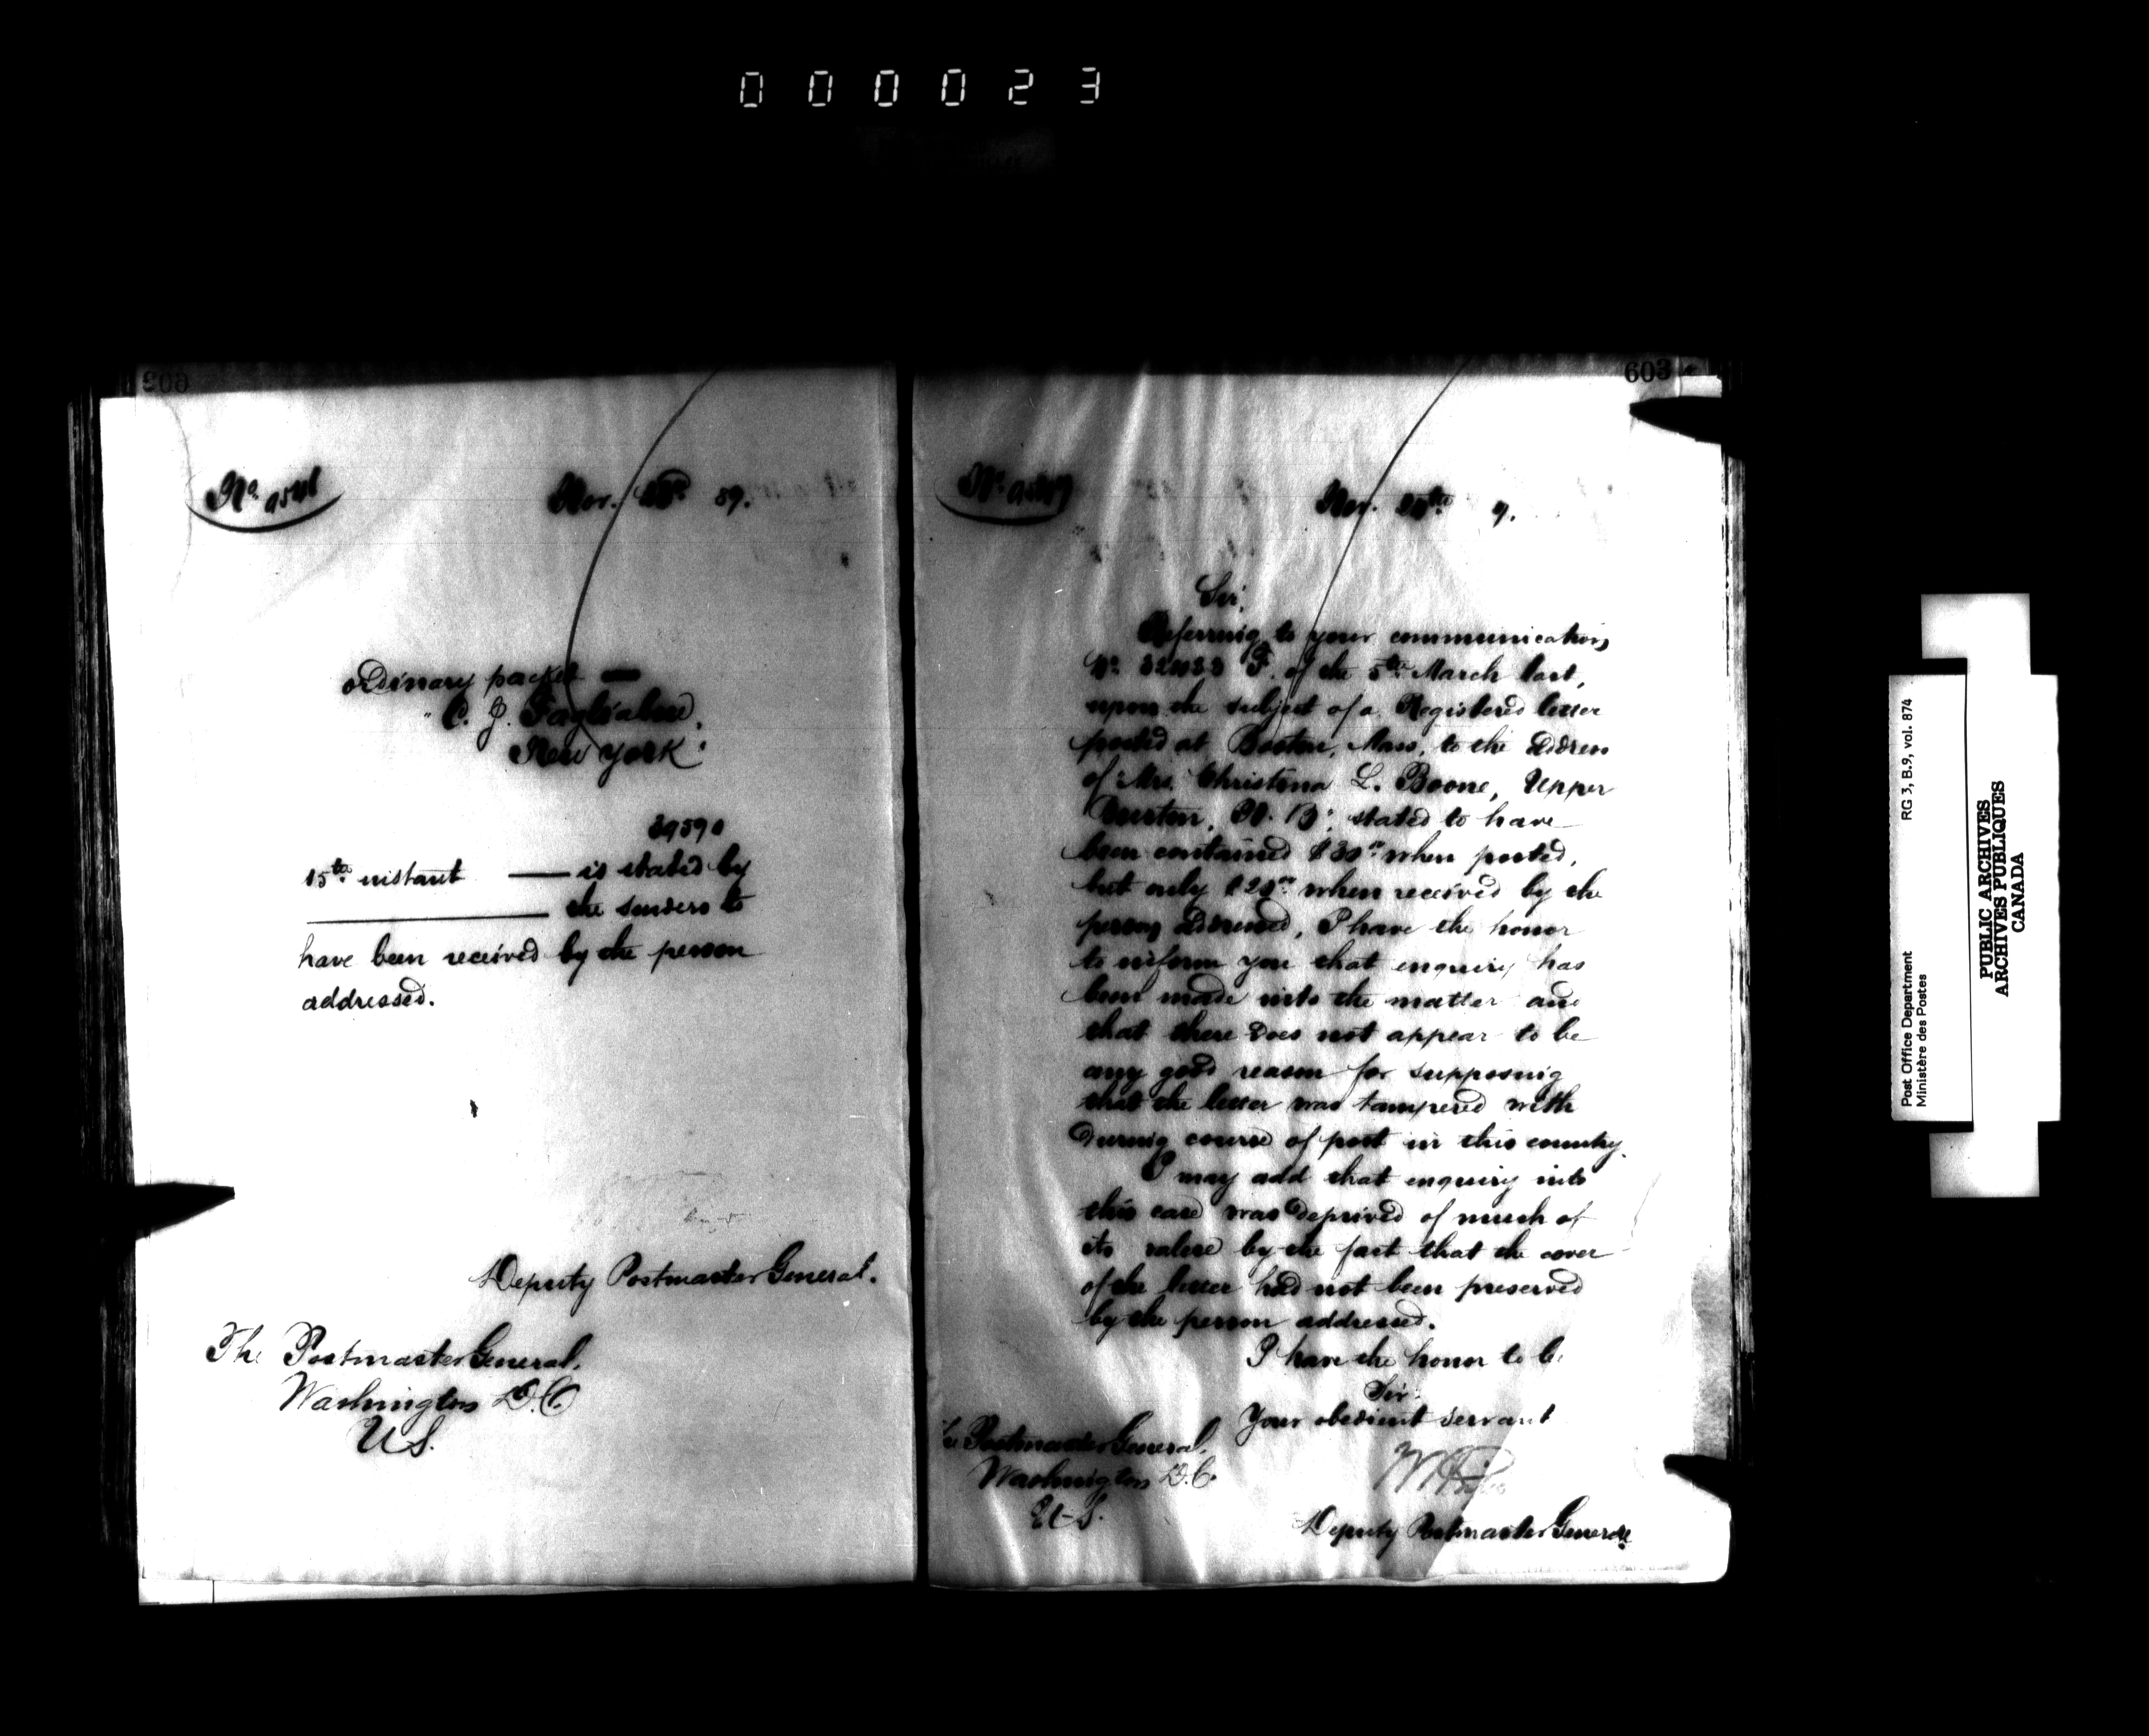 000023
603
No.
Nov. 89.
ordinary packet —
C. J.
New York.
15th instant — is stated by
the senders to
have been received by the person
addressed.
Deputy Postmaster General.
The Postmaster General,
Washington D.C.
U.S.
No.
Nov. 9.
Sir,
Referring to your communication,
No. F. of the 5th March last,
upon the subject of a Registered letter
posted at Boston, Mass, to the address
of Mrs. Christena L. Boone, Upper
N. B; stated to have
been contained $30 when posted,
but only $20 when received by the
person addressed, I have the honor
to inform you that enquiry has
been made into the matter and
that there does not appear to be
any good reason for supposing
that the letter was tampered with
during course of post in this country.
I may add that enquiry into
this case was deprived of much of
its value by the fact that the cover
of the letter had not been preserved
by the person addressed.
I have the honor to be
Sir
Your obedient servant
Deputy Postmaster General
Postmaster General,
Washington D.C.
U.S.
Post Office Department
Ministère des Postes
RG 3, B.9, vol. 874
PUBLIC ARCHIVES
ARCHIVES PUBLIQUES
CANADA